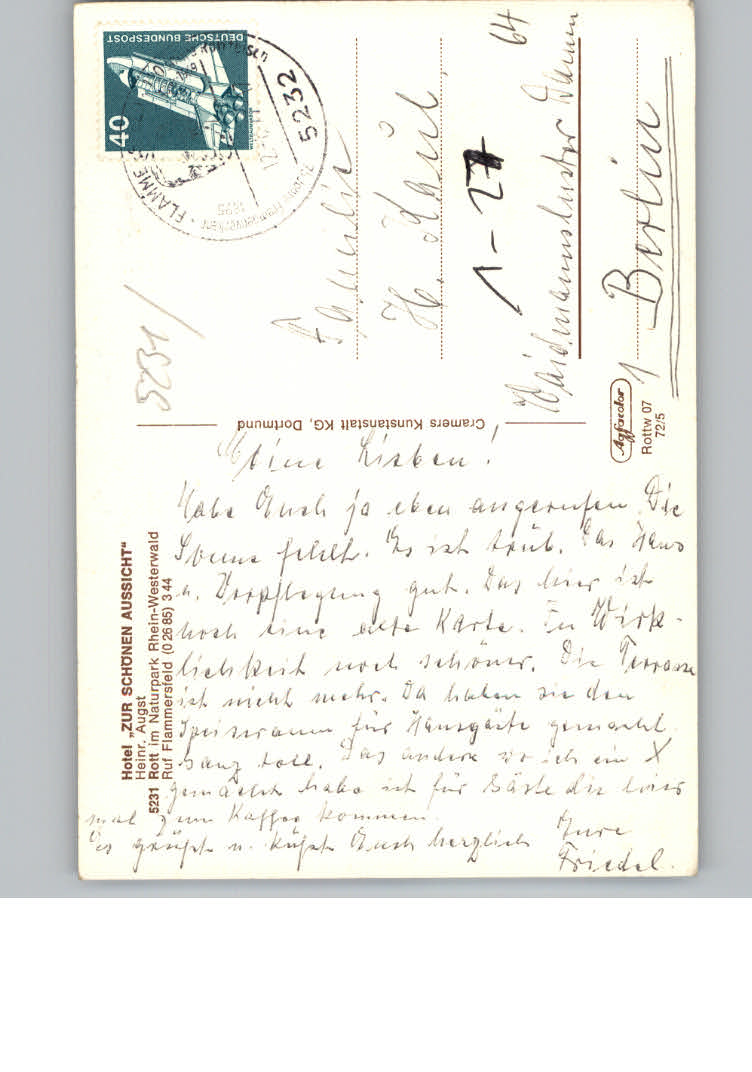 Hotel „ZUR SCHÖNEN AUSSICHT“
Heinr. Augst
5231 Rott im Naturpark Rhein-Westerwald
Ruf Flammersfeld (0 26 85) 3 44
Meine Lieben!
Habe Euch ja eben angerufen. Die
Sonne fehlt. Es ist trüb. Das Haus
u. Verpflegung gut. Das hier ist
noch eine alte Karte. In Wirk-
lichkeit noch schöner. Die Terrasse
ist nicht mehr. Da haben sie den
Speiseraum für Hausgäste gemacht.
Ganz toll. Das andere wo ich ein X
gemacht habe ist für Gäste die hier
mal zum Kaffee kommen.
Es grüßt u. küßt Euch herzlich
Eure
Friedel.
Cramers Kunstanstalt KG, Dortmund
5231
DEUTSCHE BUNDESPOST
40
5232
FLAMME
1895
Familie
H. Kaul
1-27
Waidmannsluster Damm 64
1 Berlin
Agfacolor
Rottw 07
72/5